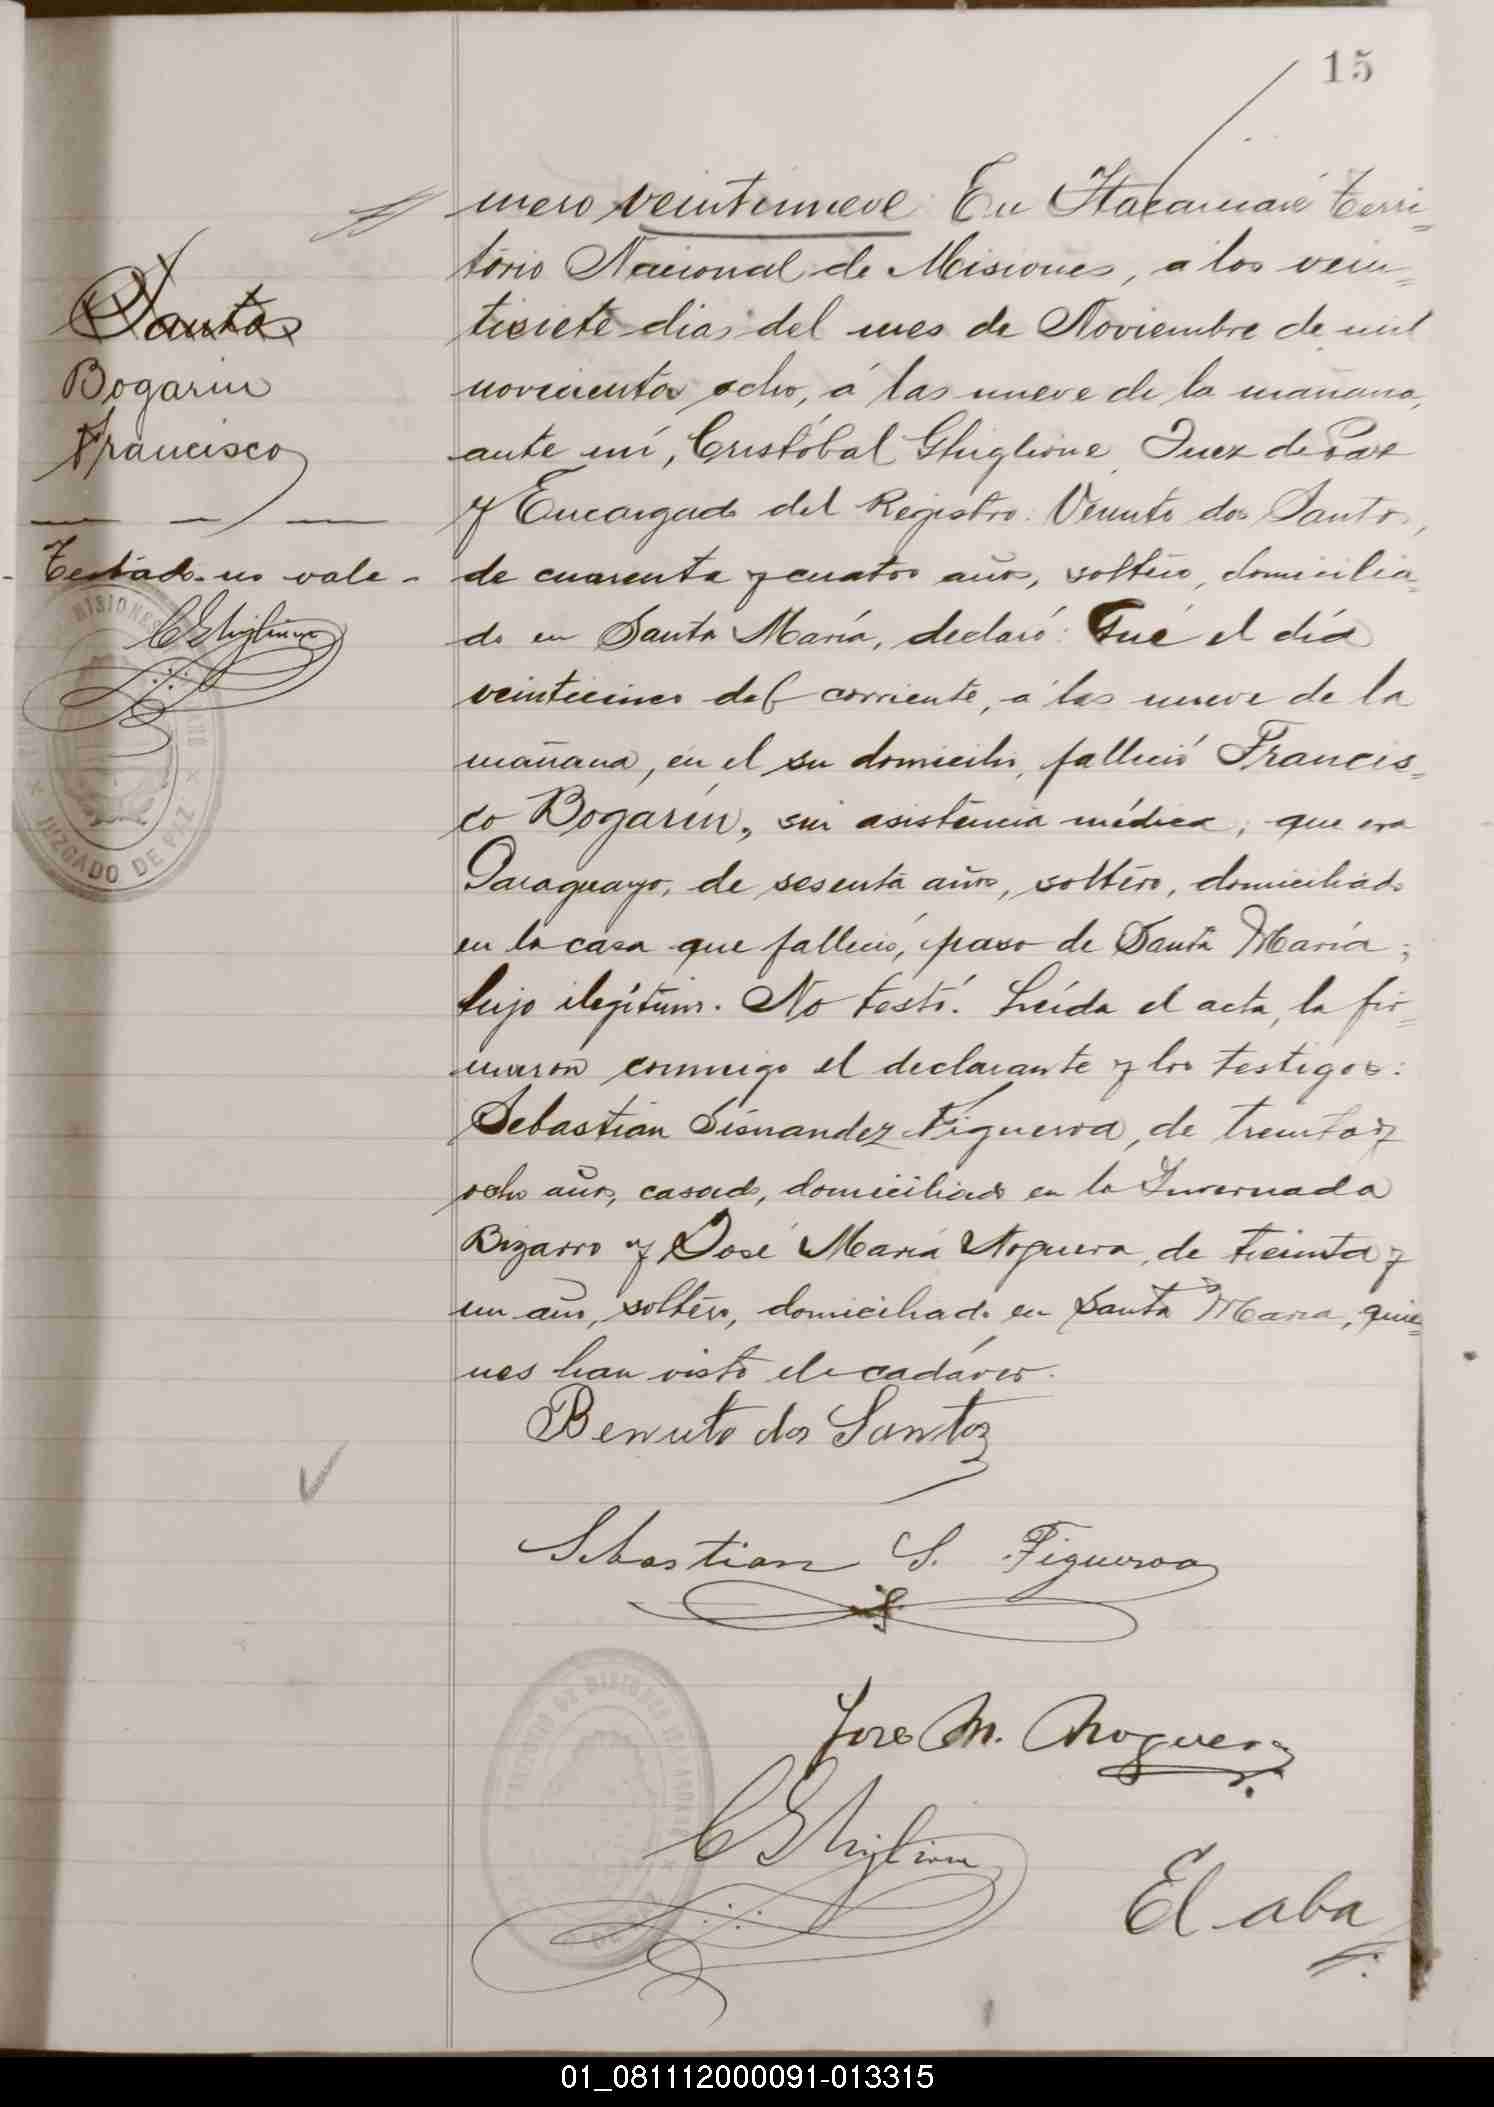 15
mero veintinueve. En Itacaruaré Terri=
torio Nacional de Misiones, a los vein=
tisiete dias del mes de Noviembre de mil
novecientos ocho, á las nueve de la mañana,
ante mí, Cristóbal Ghiglione Juez de Paz
y Encargado del Registro: Venuto dos Santos,
de cuarenta y cuatro años, soltero, domicilia=
do en Santa María, declaró: Que el día
veinticinco del corriente, a las nueve de la
mañana, en el su domicilio, falleció Francis=
co Bogarín, sin asistencia médica, que era
Paraguayo, de sesenta años, soltero, domiciliado
en la casa que falleció, paso de Santa María;
hijo ilegítimo. No testó. Leída el acta, la fir=
maron conmigo el declarante y los testigos:
Sebastián Sisnandez Figueroa, de treinta y
ocho años, casado, domiciliado en la Invernada
Bizarro y José María Noguera, de treinta y
un año, soltero, domiciliado en Santa Maria, quie=
nes han visto el cadáver.
Santos
Bogarin
Francisco
Testado no vale
CGhiglione
MISIONES
JUZGADO DE PAZ
Benuto dos Santoz
Sebastian S. Figueroa
Jose M. Noguera
CGhiglione
El aba
01_081112000091-013315